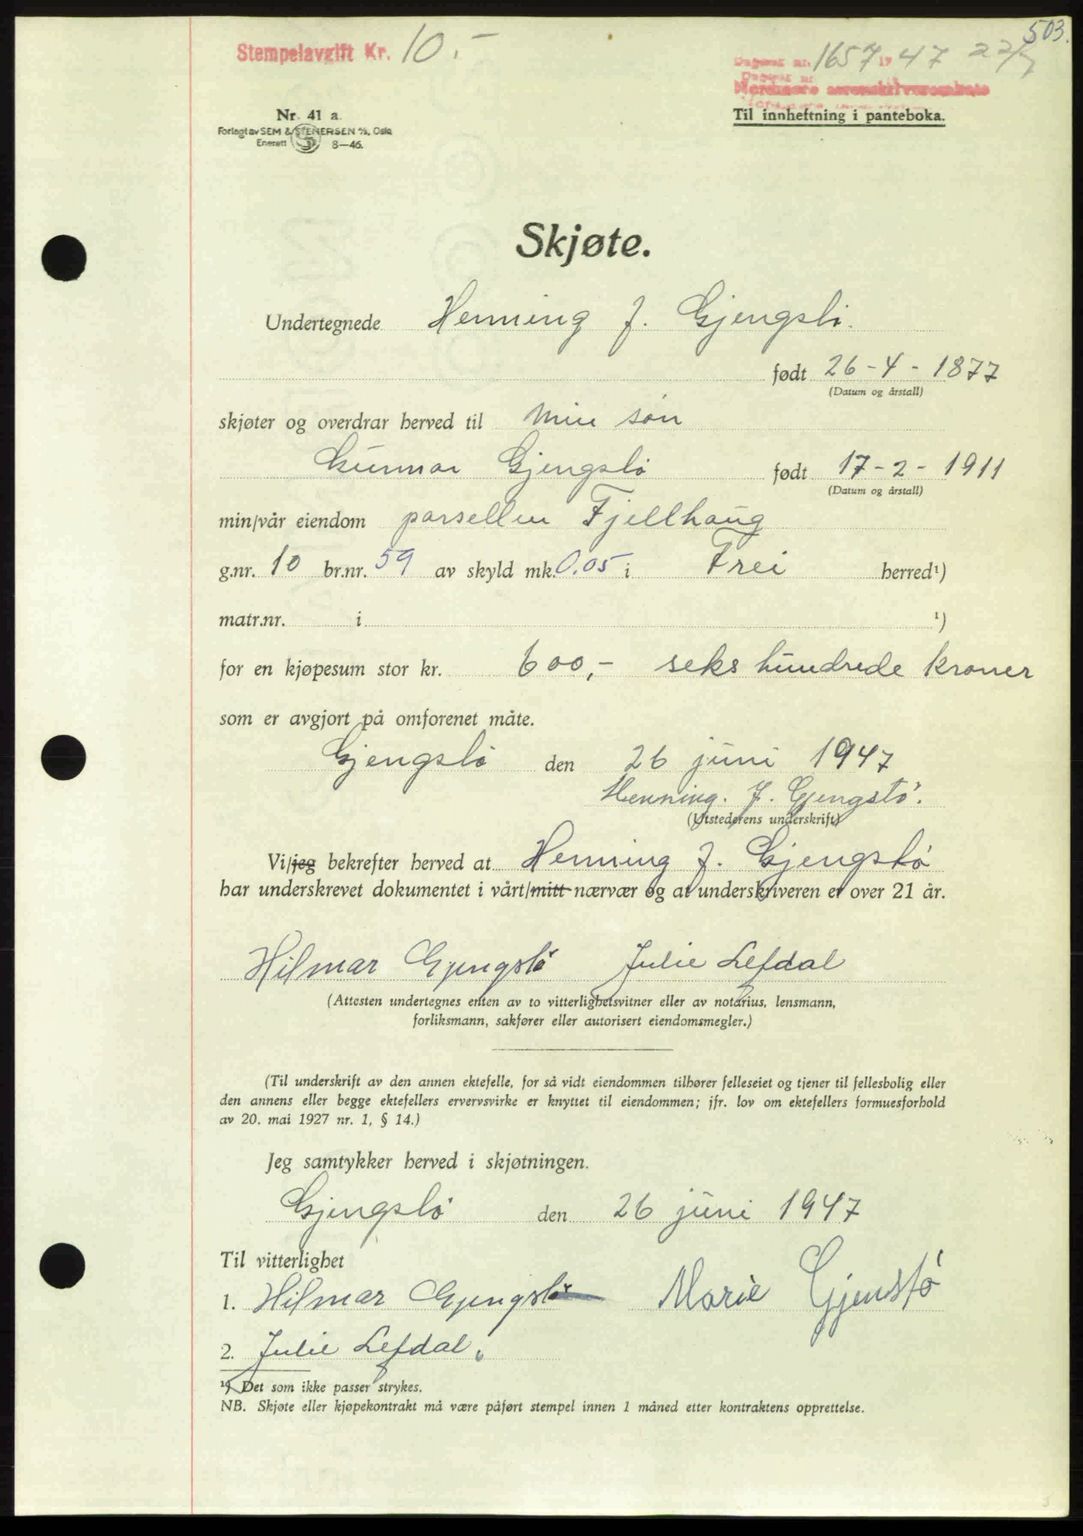 503.
Stempelavgift Kr. 10.-
Dagbok nr. 1657 19 47 22/7
Nordmøre sorenskriverembete
Nr. 41 a
Til innheftning i panteboka.
Forlagt av SEM & STENERSEN A/S, Oslo
Enerett 8—46.
Skjøte.
Undertegnede Henning J. Gjengstö.
født 26-4-1877
(Datum og årstall)
skjøter og overdrar herved til min sön
Gunnar Gjengstö født 17-2-1911
(Datum og årstall)
min/vår eiendom parsellen Fjellhaug
g.nr. 10 br.nr. 59 av skyld mk. 0.05 i Frei herred¹)
matr.nr. i ¹)
for en kjøpesum stor kr. 600,- seks hundrede kroner
som er avgjort på omforenet måte.
Gjengstö den 26 juni 1947
Henning. J. Gjengstö.
(Utstederens underskrift)
Vi/jeg bekrefter herved at Henning J. Gjengstö
har underskrevet dokumentet i vårt/mitt nærvær og at underskriveren er over 21 år.
Hilmar Gjengstö Julie Lefdal
(Attesten undertegnes enten av to vitterlighetsvitner eller av notarius, lensmann,
forliksmann, sakfører eller autorisert eiendomsmegler.)
(Til underskrift av den annen ektefelle, for så vidt eiendommen tilhører felleseiet og tjener til fellesbolig eller
den annens eller begge ektefellers ervervsvirke er knyttet til eiendommen; jfr. lov om ektefellers formuesforhold
av 20. mai 1927 nr. 1, § 14.)
Jeg samtykker herved i skjøtningen.
Gjengstö den 26 juni 1947
Til vitterlighet
1. Hilmar Gjengstö Marie Gjenstö
2. Julie Lefdal.
¹) Det som ikke passer strykes.
NB. Skjøte eller kjøpekontrakt må være påført stempel innen 1 måned etter kontraktens opprettelse.